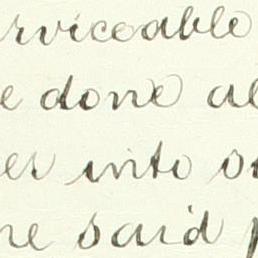 erviceable
e done al
es into s
he said